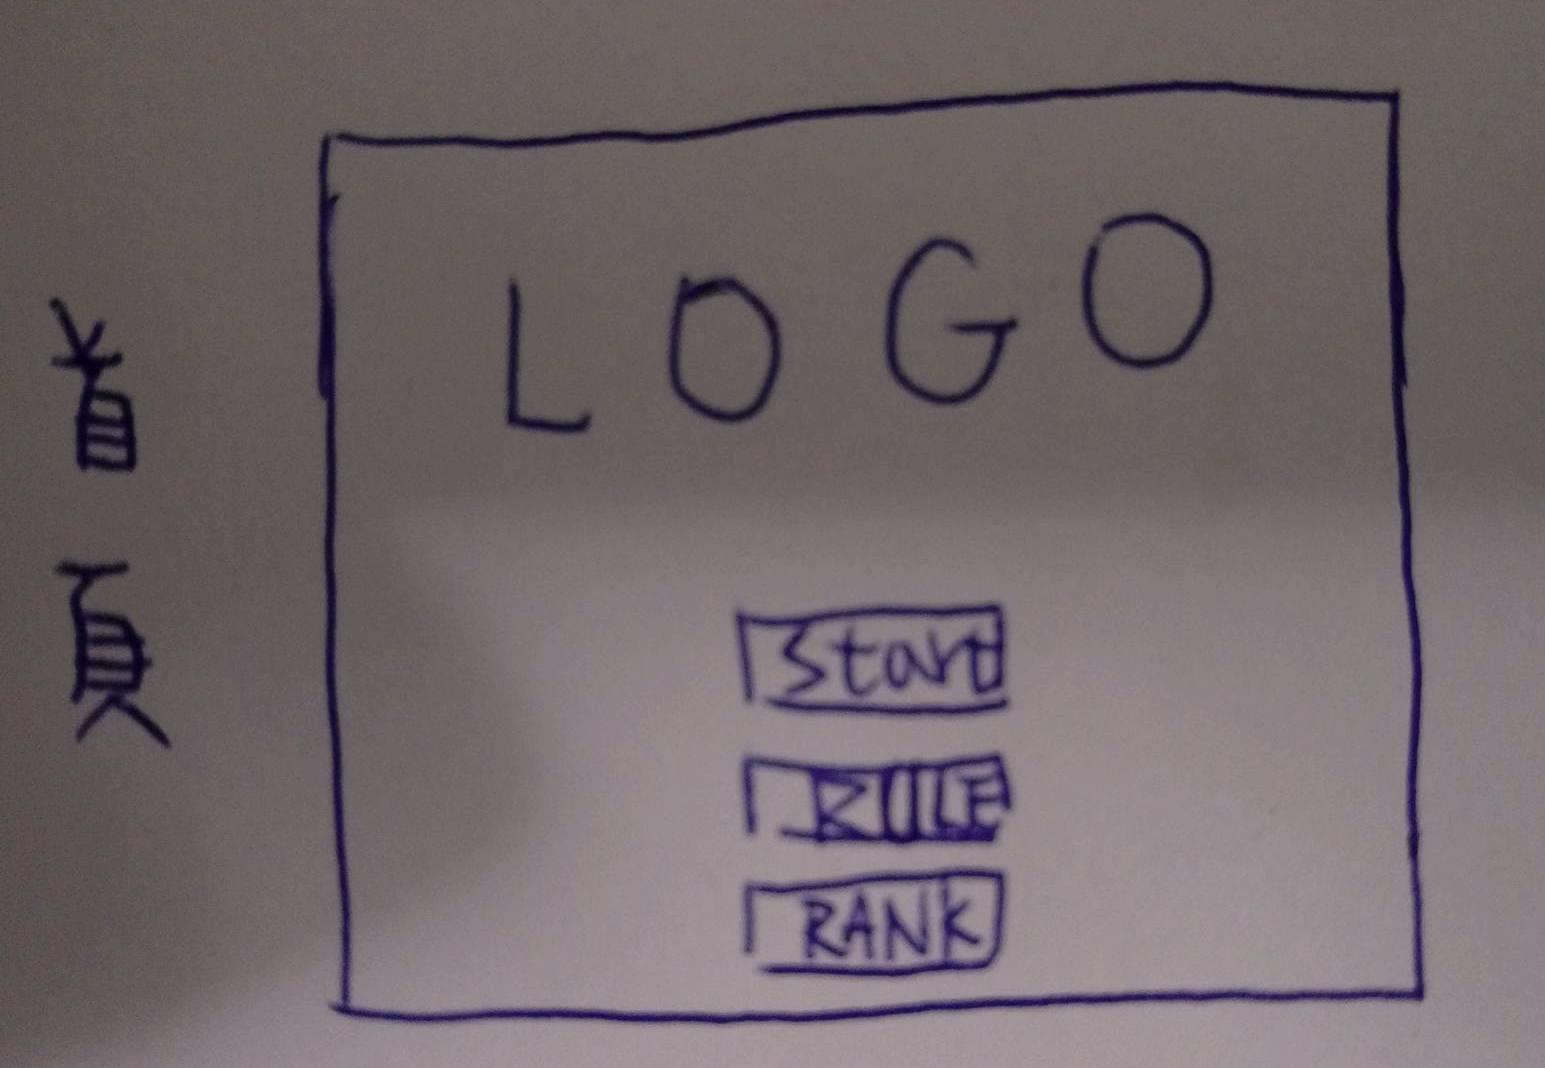 首頁
LOGO
Start
RULE
RANK